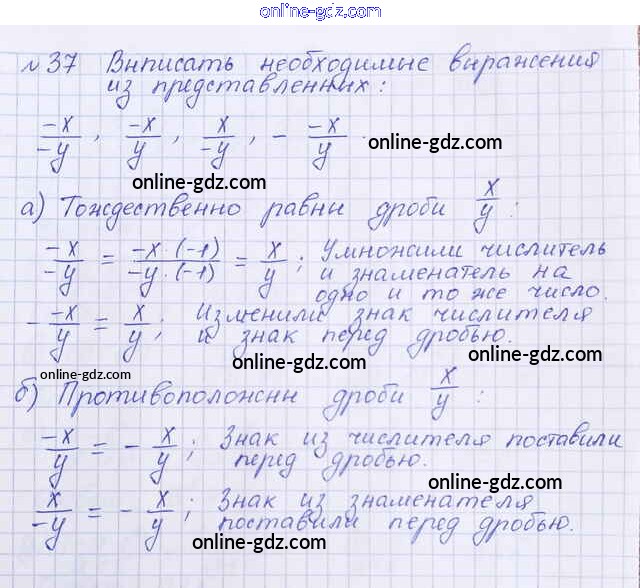 online-gdz.com
№ 37 Выписать необходимые выражения
из представленных:
-x/-y, -x/y, x/-y, - -x/y. online-gdz.com
online-gdz.com
а) Тождественно равны дроби x/y:
-x/-y = -x·(-1)/-y·(-1) = x/y; Умножили числитель
и знаменатель на
одно и то же число.
- -x/y = x/y; Изменили знак числителя
и знак перед дробью.
online-gdz.com
online-gdz.com
online-gdz.com
б) Противоположны дроби x/y:
online-gdz.com
-x/y = - x/y; Знак из числителя поставили
перед дробью.
online-gdz.com
x/-y = - x/y; Знак из знаменателя
поставили перед дробью.
online-gdz.com